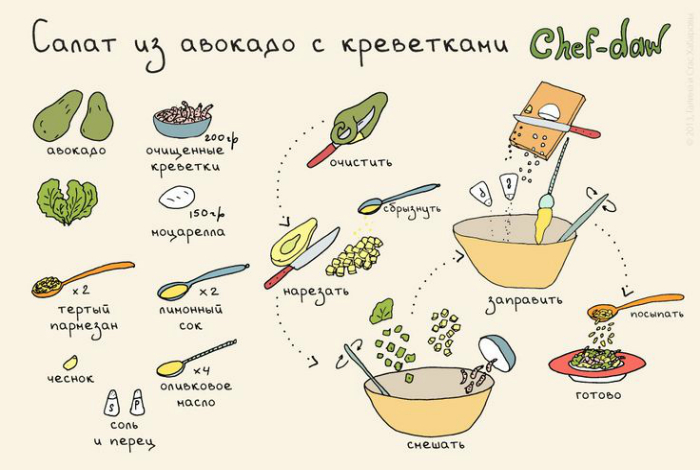 Салат из авокадо с креветками Chef-daw
авокадо
200гр
очищенные
креветки
150гр
моцарелла
x2
тертый
пармезан
x2
лимонный
сок
чеснок
x4
оливковое
масло
S P
соль
и перец
очистить
сбрызнуть
нарезать
смешать
заправить
посыпать
готово